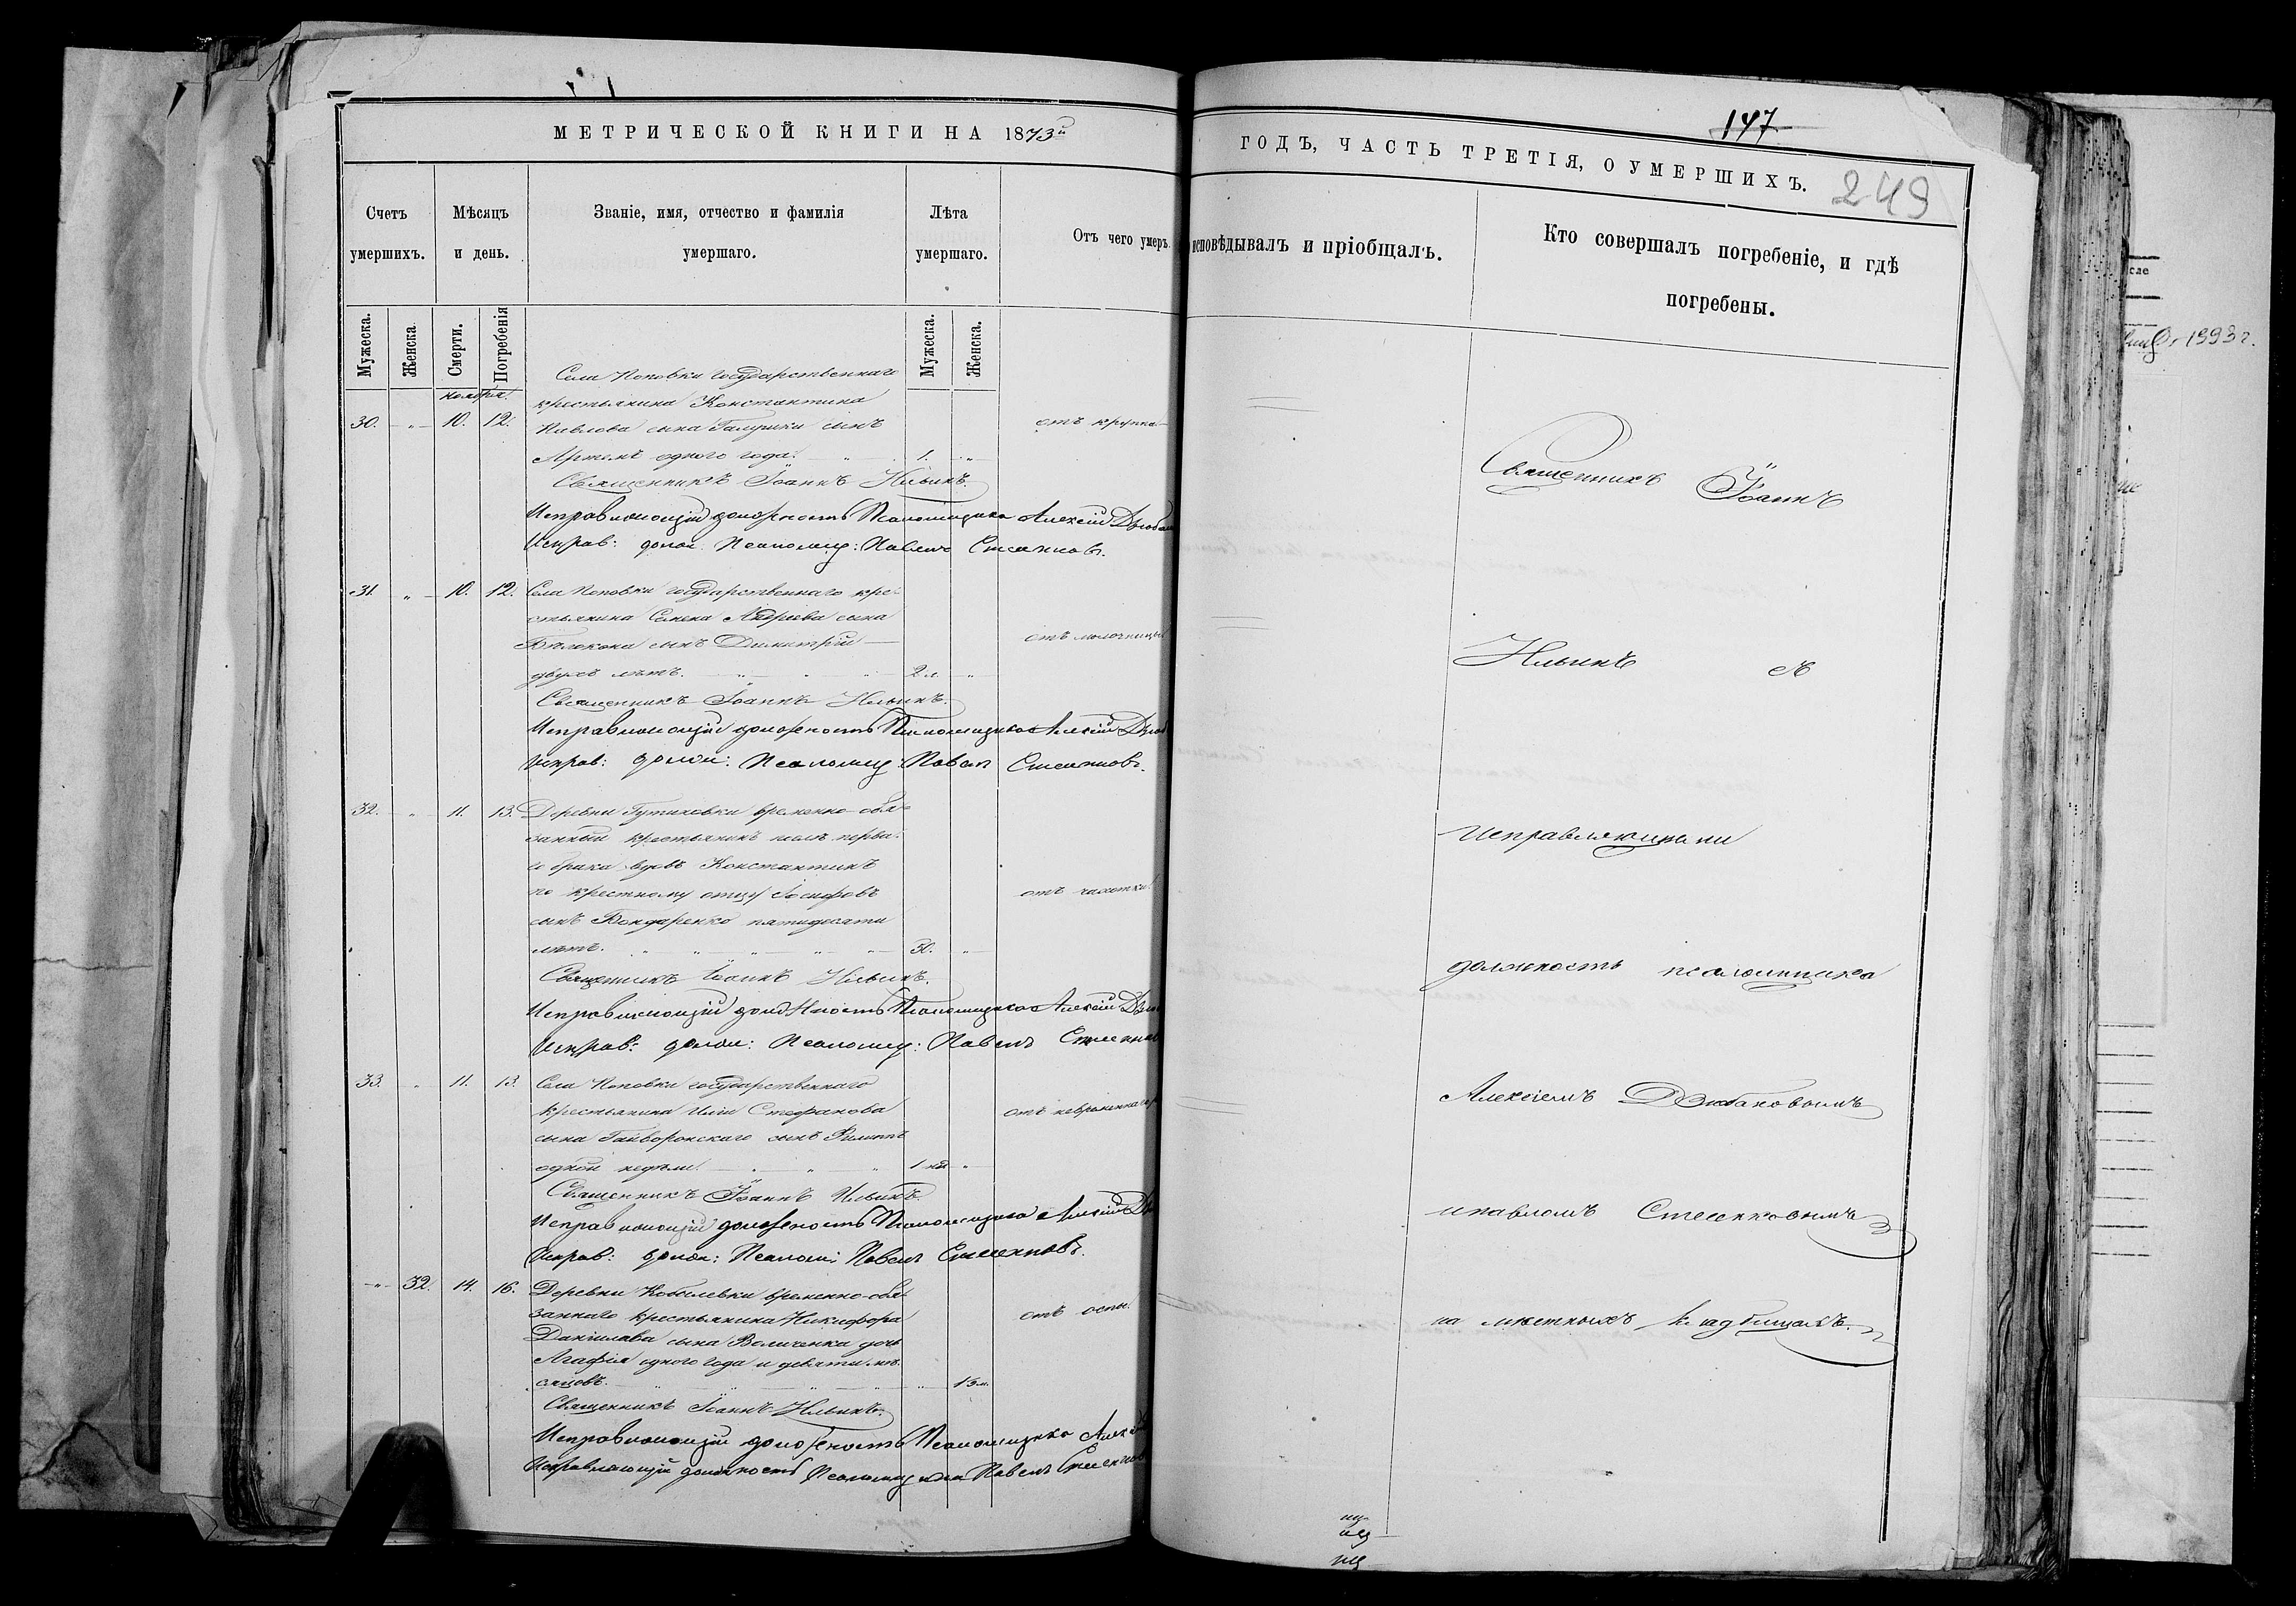 МЕТРИЧЕСКОЙ КНИГИ НА 1873й
Счетъ умершихъ.
Мѣсяцъ и день.
Званіе, имя, отчество и фамилія умершаго.
Лѣта умершаго.
Отъ чего умеръ.
Мужеска.
Женска.
Смерти.
Погребенія
Мужеска.
Женска.
ноября
Села Поповки государственнаго
крестьянина Константина
30. „ 10. 12. Павлова сына сынъ отъ крупа
Артемъ одного года. 1. „
Священникъ Іоаннъ Ильинъ.
Исправляющій должность Псаломщика Алексій
Исправ: долж: Псаломщ: Павелъ
31. „ 10. 12. Села Поповки государственнаго кре-
стьянина Семена Андреева сына
Бѣлокона сынъ Димитрій отъ молочницы
двухъ лѣтъ. 2 л. „
Священникъ Іоаннъ Ильинъ.
Исправляющій должность Псаломщика Алексій
Исправ: долж: Псаломщ: Павелъ
32. „ 11. 13. Деревни временно-обя-
занный крестьянинъ послѣ перва-
го брака вдовъ Константинъ
по крестному отцу Іосифовъ отъ чахотки
сынъ Бондаренко пятидесяти
лѣтъ. 50. „
Священникъ Іоаннъ Ильинъ.
Исправляющій должность Псаломщика Алексій
Исправ: долж: Псаломщ: Павелъ
33. „ 11. 13. Села Поповки государственнаго
крестьянина Иліи Стефанова
сына Гайворонскаго сынъ Филиппъ
одной недѣли. 1 нед. „
Священникъ Іоаннъ Ильинъ.
Исправляющій должность Псаломщика Алексій
Исправ: долж: Псаломщ: Павелъ
„ 32. 14. 16. Деревни Кобылевки временно-обя-
заннаго крестьянина Никифора отъ оспы.
Даніилова сына Величенка дочь
Агафія одного года и девяти мѣ-
сяцовъ.
Священникъ Іоаннъ Ильинъ.
Исправляющій должность Псаломщика
Исправляющій должность Псаломщика Павелъ
147
ГОДЪ, ЧАСТЬ ТРЕТІЯ, О УМЕРШИХЪ.
249
исповѣдывалъ и пріобщалъ.
Кто совершалъ погребеніе, и гдѣ
погребены.
Священникъ Іоаннъ
Ильинъ съ
исправляющими
должность псаломщика
Алексіемъ Дзюбановымъ
и Павломъ
на мѣстныхъ кладбищахъ.
1993 г.